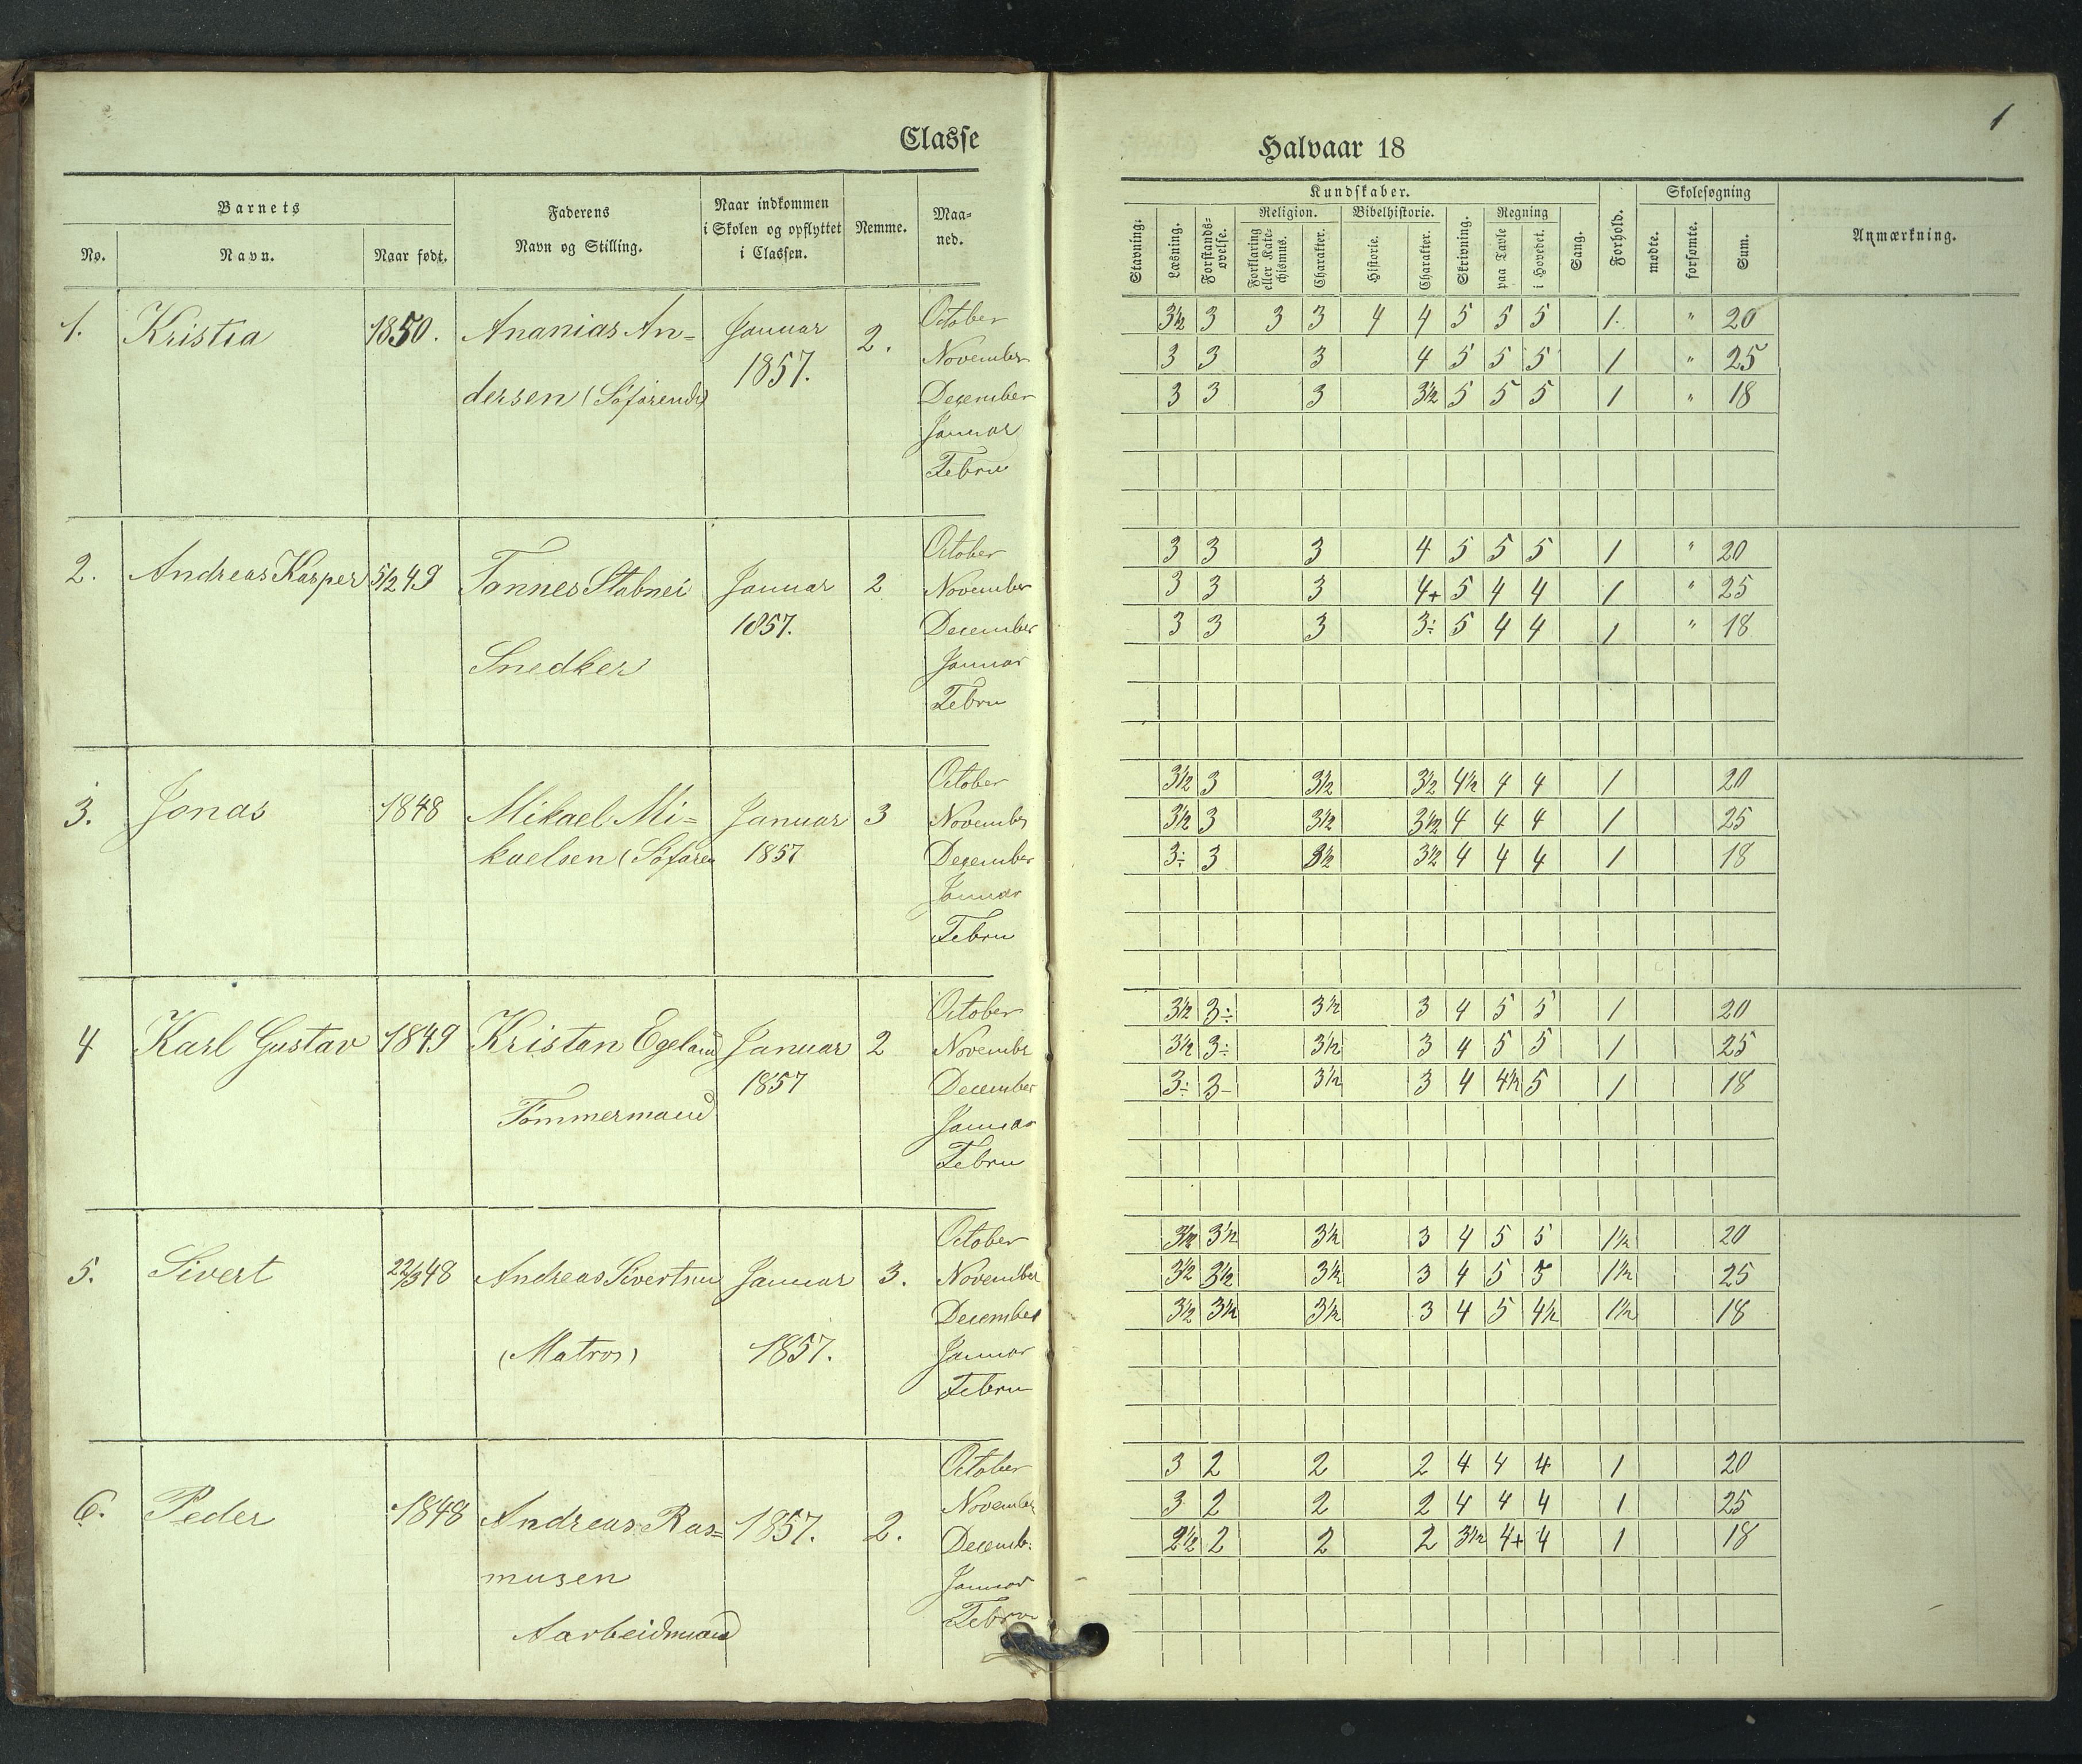 1
Classe
Halvaar 18
Barnets
No.
Navn.
Naar født.
Faderens
Navn og Stilling.
Naar indkommen
i Skolen og opflyttet
i Classen.
Nemme.
Maa-
ned.
Kundskaber.
Stavning.
Læsning.
Forstands-
øvelse.
Religion.
Forklaring
eller Kate-
chismus.
Charakter.
Bibelhistorie.
Historie.
Charakter.
Skrivning.
Regning
paa Tavle
i Hovedet.
Sang.
Forhold.
Skolesøgning
mødte.
forsømte.
Sum.
Anmærkning.
1. Kristia 1850. Ananias An= Januar 2.
dersen (Søfarende) 1857.
October 3½ 3 3 3 4 4 5 5 5 1. " 20
November 3 3 3 4 5 5 5 1 " 25
December 3 3 3 3½ 5 5 5 1 " 18
Januar
Febru
2. Andreas Kasper 5/12 49 Tønnes Stabnei Januar 2
Snedker 1857.
October 3 3 3 4 5 5 5 1 " 20
November 3 3 3 4+ 5 4 4 1 " 25
December 3 3 3 3÷ 5 4 4 1 " 18
Januar
Febru
3. Jonas 1848 Mikael Mi= Januar 3
kaelsen (Søfaren 1857
October 3½ 3 3½ 3½ 4½ 4 4 1 20
November 3½ 3 3½ 3½ 4 4 4 1 25
December 3÷ 3 3½ 3½ 4 4 4 1 18
Januar
Febru
4 Karl Gustav 1849 Kristan Egeland Januar 2
Tømmermand 1857
October 3½ 3÷ 3½ 3 4 5 5 1 20
Novembr 3½ 3÷ 3½ 3 4 5 5 1 25
December 3÷ 3- 3½ 3 4 4½ 5 1 18
Januar
Febru
5. Sivert 22/3 48 Andreas Sivertsen Januar 3.
(Matros) 1857.
October 3½ 3½ 3½ 3 4 5 5 1½ 20
November 3½ 3½ 3½ 3 4 5 5 1½ 25
December 3½ 3½ 3½ 3 4 5 4½ 1½ 18
Januar
Febru
6. Peder 1848 Andreas Ras= 1857. 2.
musen
Aarbeidmand
October 3 2 2 2 4 4 4 1 20
November 3 2 2 2 4 4 4 1 25
Decemb: 2½ 2 2 2 3½ 4+ 4 1 18
Januar
Febru